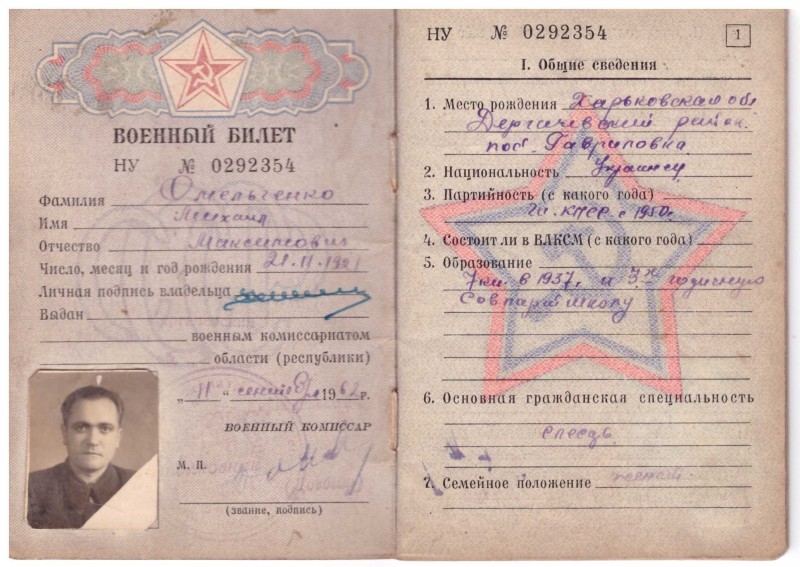 ВОЕННЫЙ БИЛЕТ
НУ № 0292354
Фамилия Омельченко
Имя Михаил
Отчество Максимович
Число, месяц и год рождения 21.11.1921
Личная подпись владельца
Выдан
военным комиссариатом
области (республики)
„11“ сентября 1962 г.
ВОЕННЫЙ КОМИССАР
М. П.
(звание, подпись)
НУ № 0292354
1
I. Общие сведения
1. Место рождения Харьковская обл
Дергачевский район
пос. Гавриловка
2. Национальность Украинец
3. Партийность (с какого года)
Чл. КПСС с 1950г.
4. Состоит ли в ВЛКСМ (с какого года)
5. Образование
7 кл. в 1937. и 3х годичную
Совпартшколу
6. Основная гражданская специальность
слесарь
7. Семейное положение женат